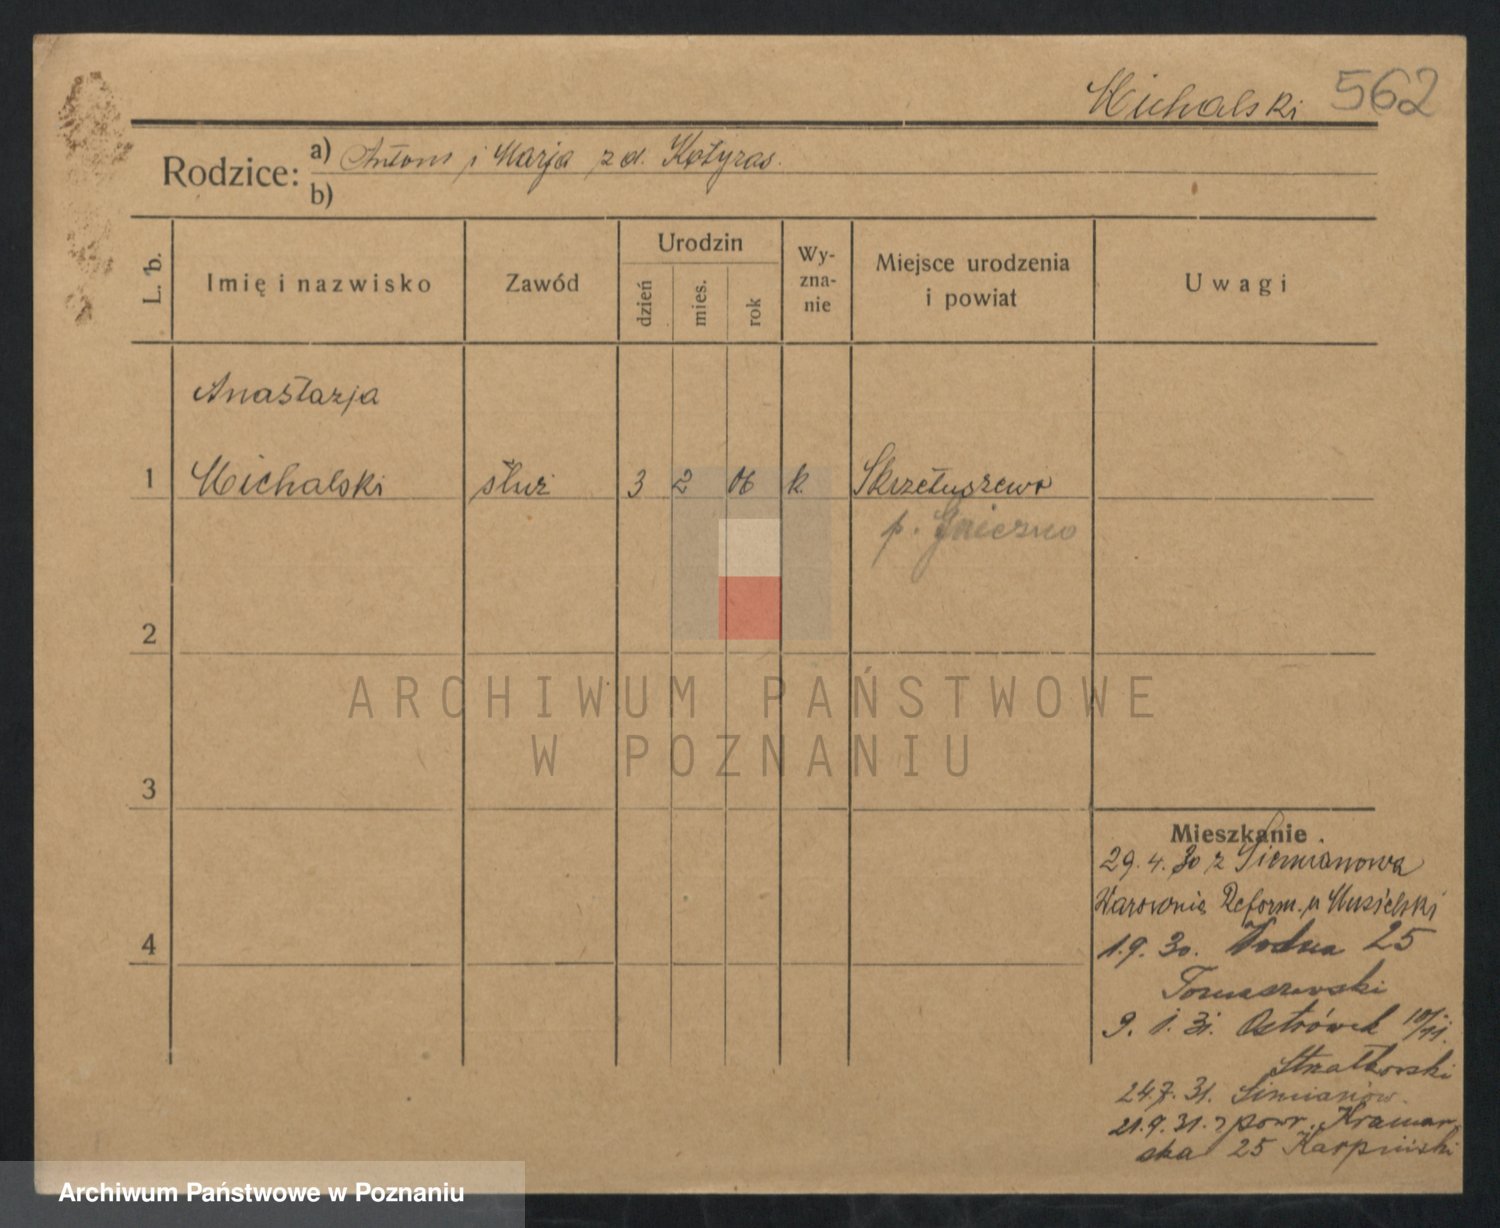 Michalski 562
Rodzice: a) Antoni i Marja z d. Kotyras.
b)
L. b.
Imię i nazwisko
Zawód
Urodzin
dzień
mies.
rok
Wy-
zna-
nie
Miejsce urodzenia
i powiat
Uwagi
Anastazja
1 Michalski służ 3 2 06 k. Skrzetuszewo
p. Gniezno
2
3
4
ARCHIWUM PAŃSTWOWE
W POZNANIU
Mieszkanie.
29.4.30 z Siemianowa
Reform. u Musielski
1.9.30. Wodna 25
Tomaszewski
9. 1. 31. Ostrówek 10/11.
Strzałkowski
24.7.31. Simianow.
21.9.31. z powr. Kramar
ska 25 Karpiński
Archiwum Państwowe w Poznaniu